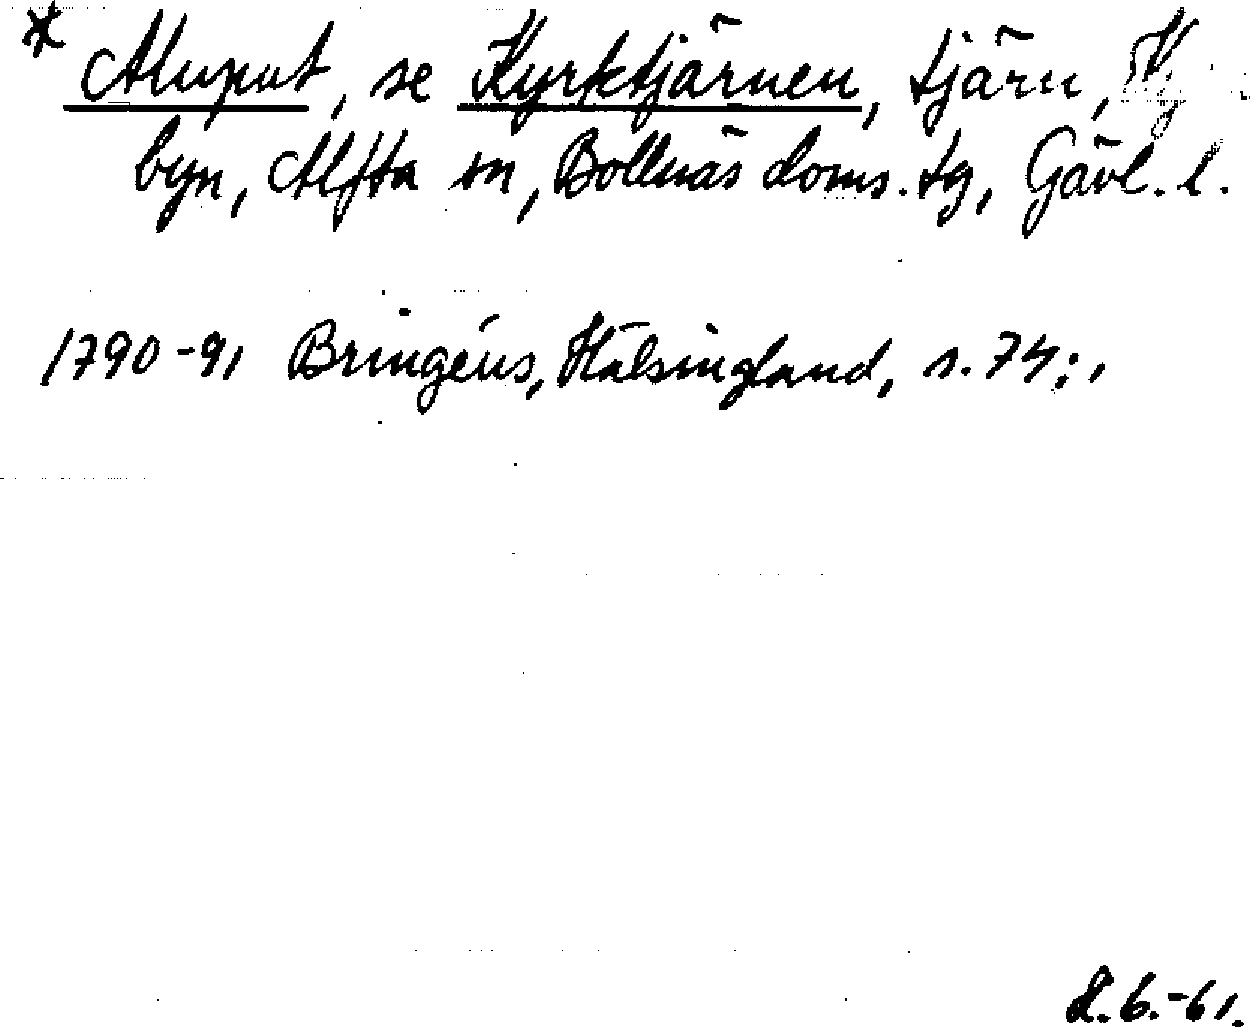 * Aluput, se Kyrktjärnen, tjärn,
byn, Alfta sn, Bollnäs doms. tg, Gävl. l.
1790-91 Bringéus, Hälsingland, s. 74;,
6.-61.